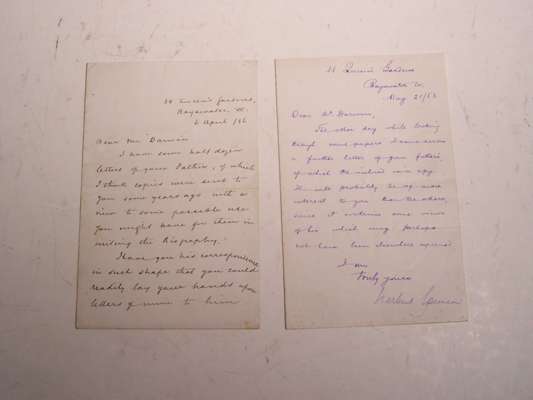 38 Queen's Gardens,
Bayswater, W.
2 April /86
Dear Mr Darwin
I have some half dozen
letters of your Father, of which
I think copies were sent to
you some years ago with a
view to some possible use
you might have for them in
writing the Biography.
Have you his correspondence
in such shape that you could
readily lay your hands upon
letters of mine to him
38 Queen's Gardens
Bayswater W.
May 21/86
Dear Mr Darwin,
The other day while looking
through some papers I came across
a further letter of your father's,
of which the enclosed is a copy.
It will probably be of more
interest to you than the others,
since it contains some views
of his which may perhaps
not have been elsewhere expressed
I am
truly yours
Herbert Spencer